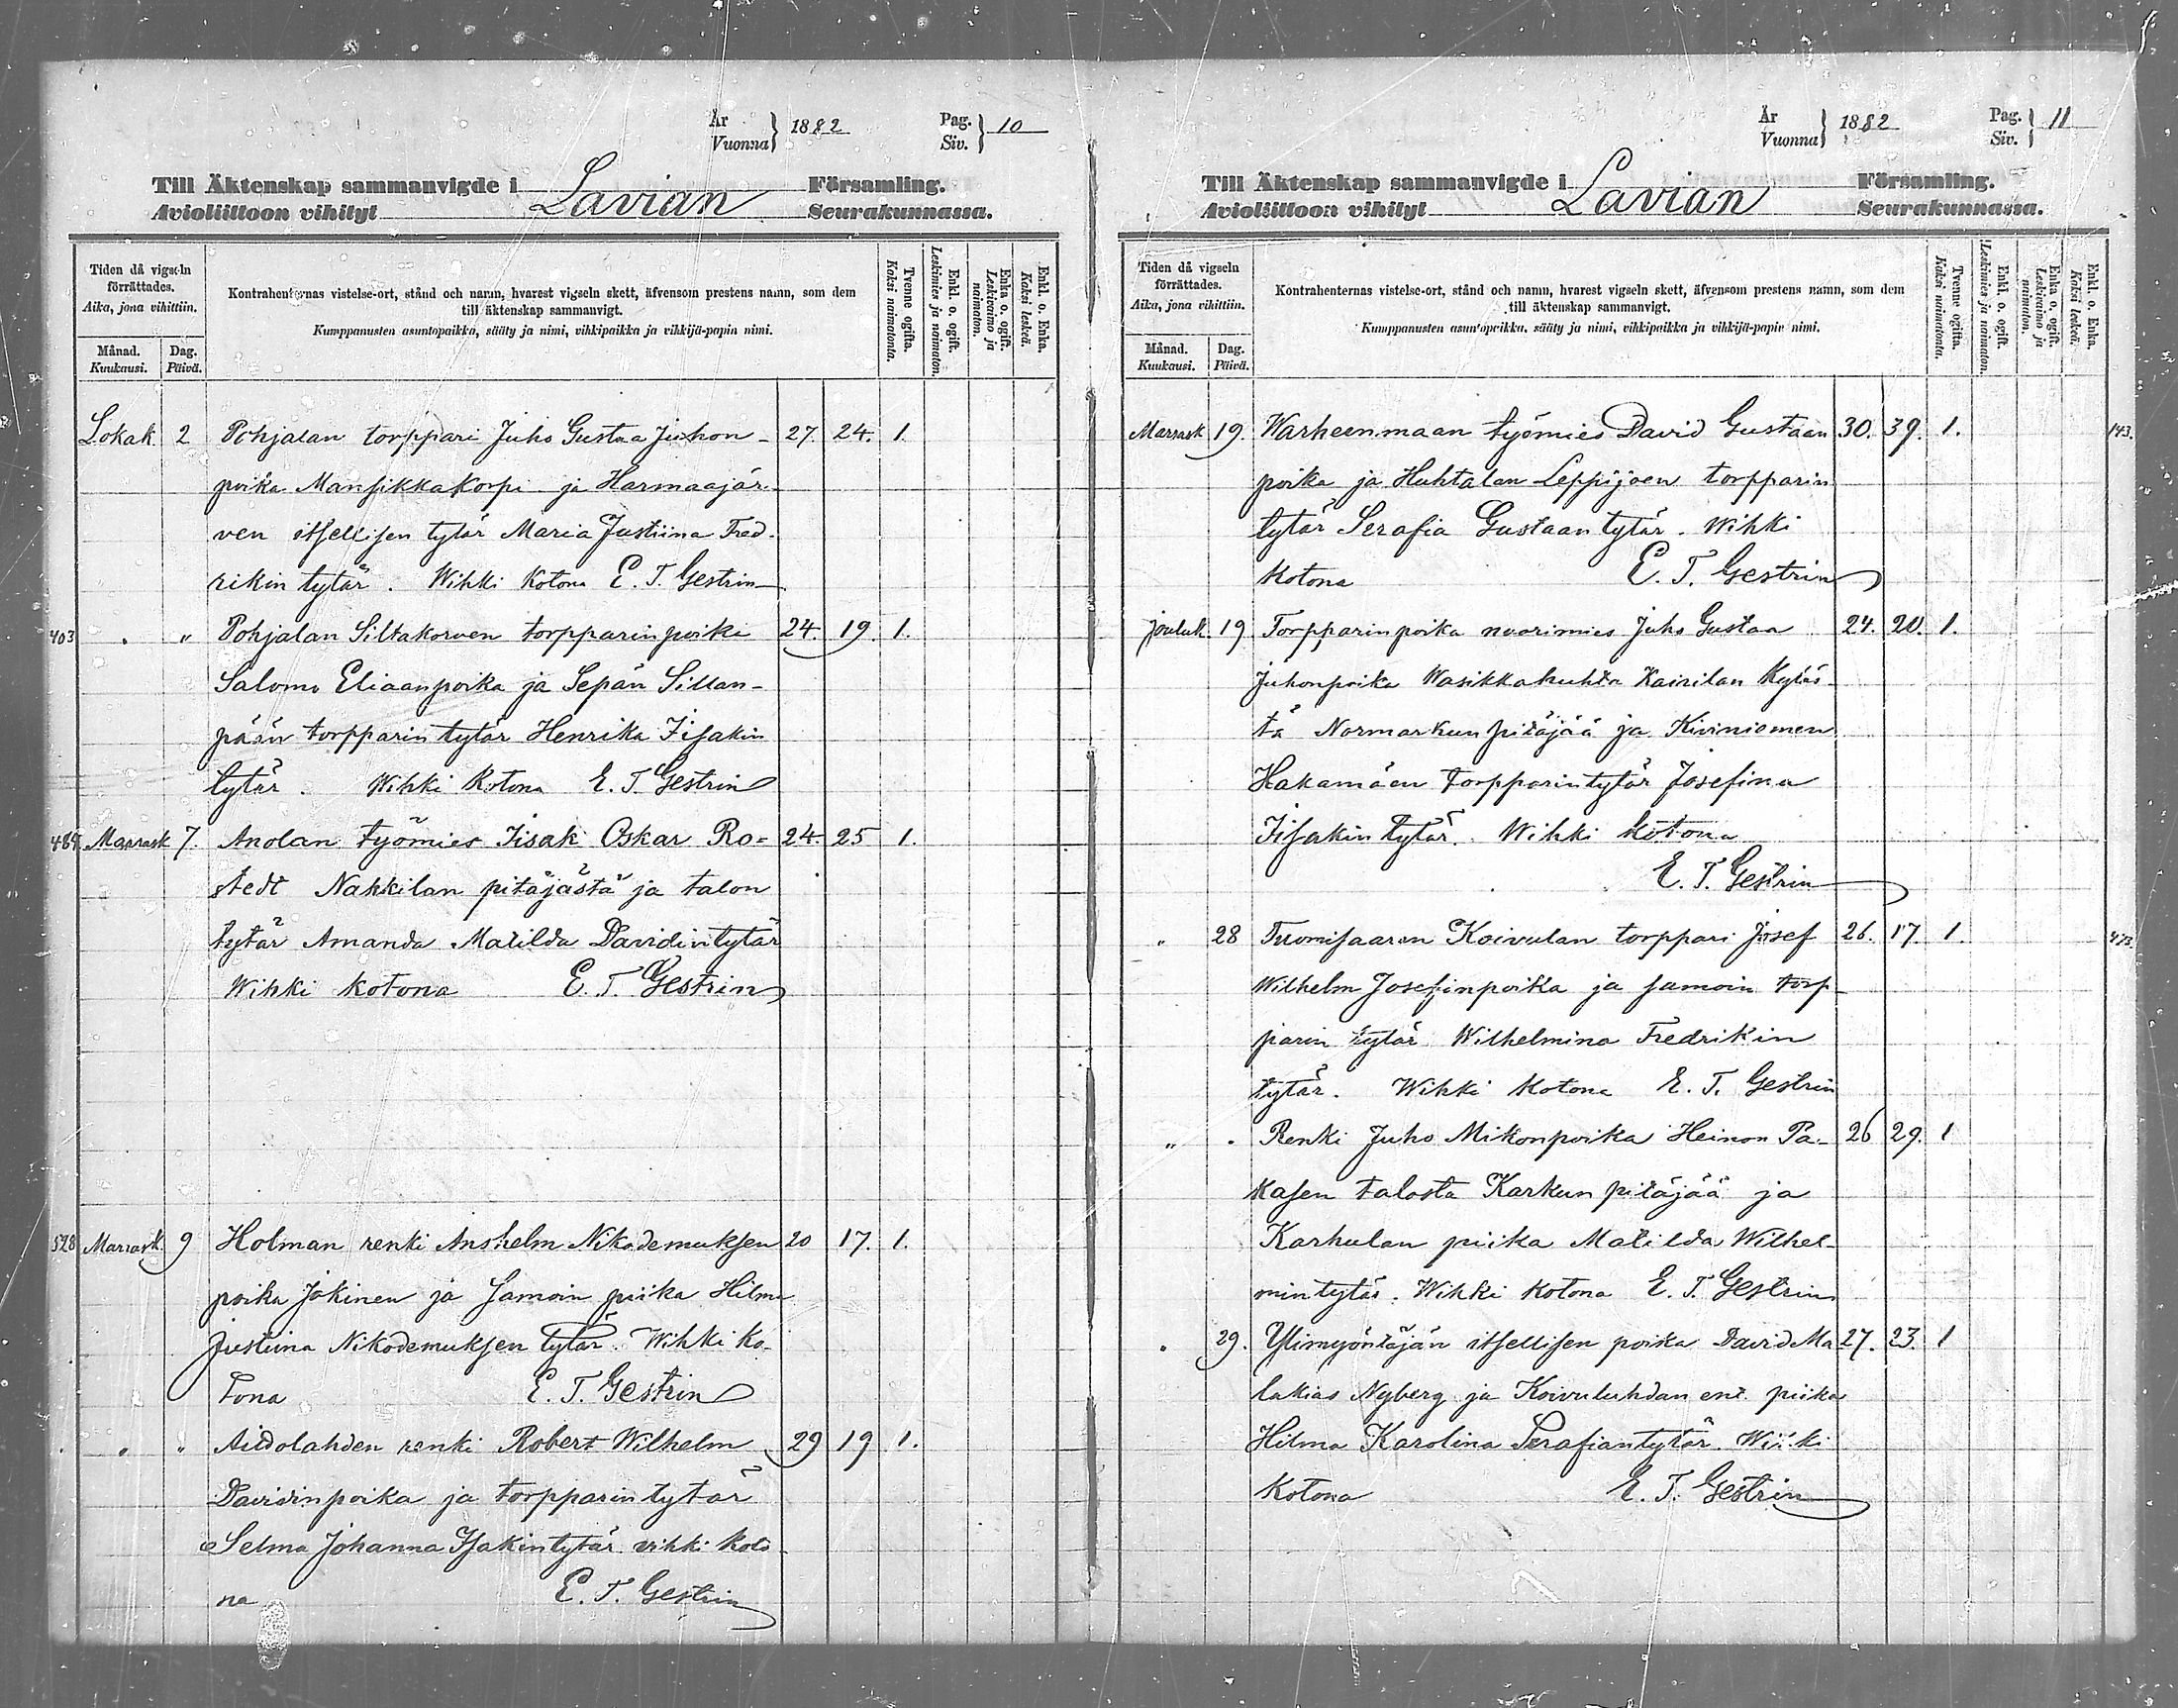 År
Vuonna } 1882 Pag.
Siv. } 10
Till Äktenskap sammanvigde i Lavian Församling.
Avioliittoon vihityt Seurakunnassa.
Tiden då vigseln förrättades.
Aika, jona vihittiin.
Månad.
Kuukausi.
Dag.
Päivä.
Kontrahenternas vistelse-ort, stånd och namn, hvarest vigseln skett, äfvensom prestens namn, som dem
till äktenskap sammanvigt.
Kumppanusten asuntopaikka, sääty ja nimi, vihkipaikka ja vihkijä-papin nimi.
Tvenne ogifta.
Kaksi naimatonta.
Enkl. o. ogift.
Leskimies ja naimaton.
Enka o. ogift.
Leskivaimo ja naimaton.
Enkl. o. Enka.
Kaksi leskeä.
Lokak. 2 Pohjalan torppari Juho Gustaa Juhon- 27. 24. 1.
poika Mansikkakorpi ja Harmaajär-
ven itsellisen tytär Maria Justiina Fred-
rikin tytär. Wihki kotona E. T. Gestrin
403 . " Pohjalan Siltakorven torpparin poika 24. 19. 1.
Salomo Eliaanpoika ja Sepän Sillan-
pään torpparin tytär Henrika Iisakin
tytär. Wihki kotona E. T. Gestrin
489 Marrask 7. Anolan työmies Iisak Oskar Ro- 24. 25 1.
stedt Nakkilan pitäjästä ja talon
tytär Amanda Matilda Davidin tytär
Wihki kotona E. T. Gestrin
528 Marrask. 9 Holman renki Anshelm Nikodemuksen 20 17. 1.
poika Jokinen ja samoin piika Hilma
Justiina Nikodemuksen tytär. Wihki ko-
tona E. T. Gestrin
" " Aidolahden renki Robert Wilhelm 29 19 1.
Davidinpoika ja torpparin tytär
Selma Johanna Isakintytär vihki koto
na E. T. Gestrin
År
Vuonna } 1882 Pag.
Siv. } 11
Till Äktenskap sammanvigde i Lavian Församling.
Avioliittoon vihityt Seurakunnassa.
Tiden då vigseln förrättades.
Aika, jona vihittiin.
Månad.
Kuukausi.
Dag.
Päivä.
Kontrahenternas vistelse-ort, stånd och namn, hvarest vigseln skett, äfvensom prestens namn, som dem
till äktenskap sammanvigt.
Kumppanusten asuntopaikka, sääty ja nimi, vihkipaikka ja vihkijä-papin nimi.
Tvenne ogifta.
Kaksi naimatonta.
Enkl. o. ogift.
Leskimies ja naimaton.
Enka o. ogift.
Leskivaimo ja naimaton.
Enkl. o. Enka.
Kaksi leskeä.
Marrask 19. Warheenmaan työmies David Gustaan 30. 39. 1. 143.
poika ja Huhtalan Leppijoen torpparin
tytär Serafia Gustaan tytär. Wihki
kotona E. T. Gestrin
Jouluk. 19 Torpparin poika nuorimies Juho Gustaa 24. 20. 1.
Juhonpoika Wasikkahuhta Kairilan kyläs-
tä Normarkun pitäjää ja Kiviniemen
Hakamäen torpparin tytär Josefina
Iisakin tytär. Wihki kotona
E. T. Gestrin
" 28 Tuomisaaren Koivulan torppari Josef 26. 17. 1.
Wilhelm Josefinpoika ja samoin torp-
parin tytär Wilhelmina Fredrikin
tytär. Wihki kotona E. T. Gestrin
" . Renki Juho Mikonpoika Heinon Pa- 26 29. 1
kasen talosta Karkun pitäjää ja
Karhulan piika Matilda Wilhel-
mintytär. Wihki kotona E. T. Gestrin
. 29. Ylimyöntäjän itsellisen poika David Ma 27. 23. 1
lakias Nyberg ja Koivuluhdan ent. piika
Hilma Karolina Serafiantytär. Wihki
kotona E. T. Gestrin